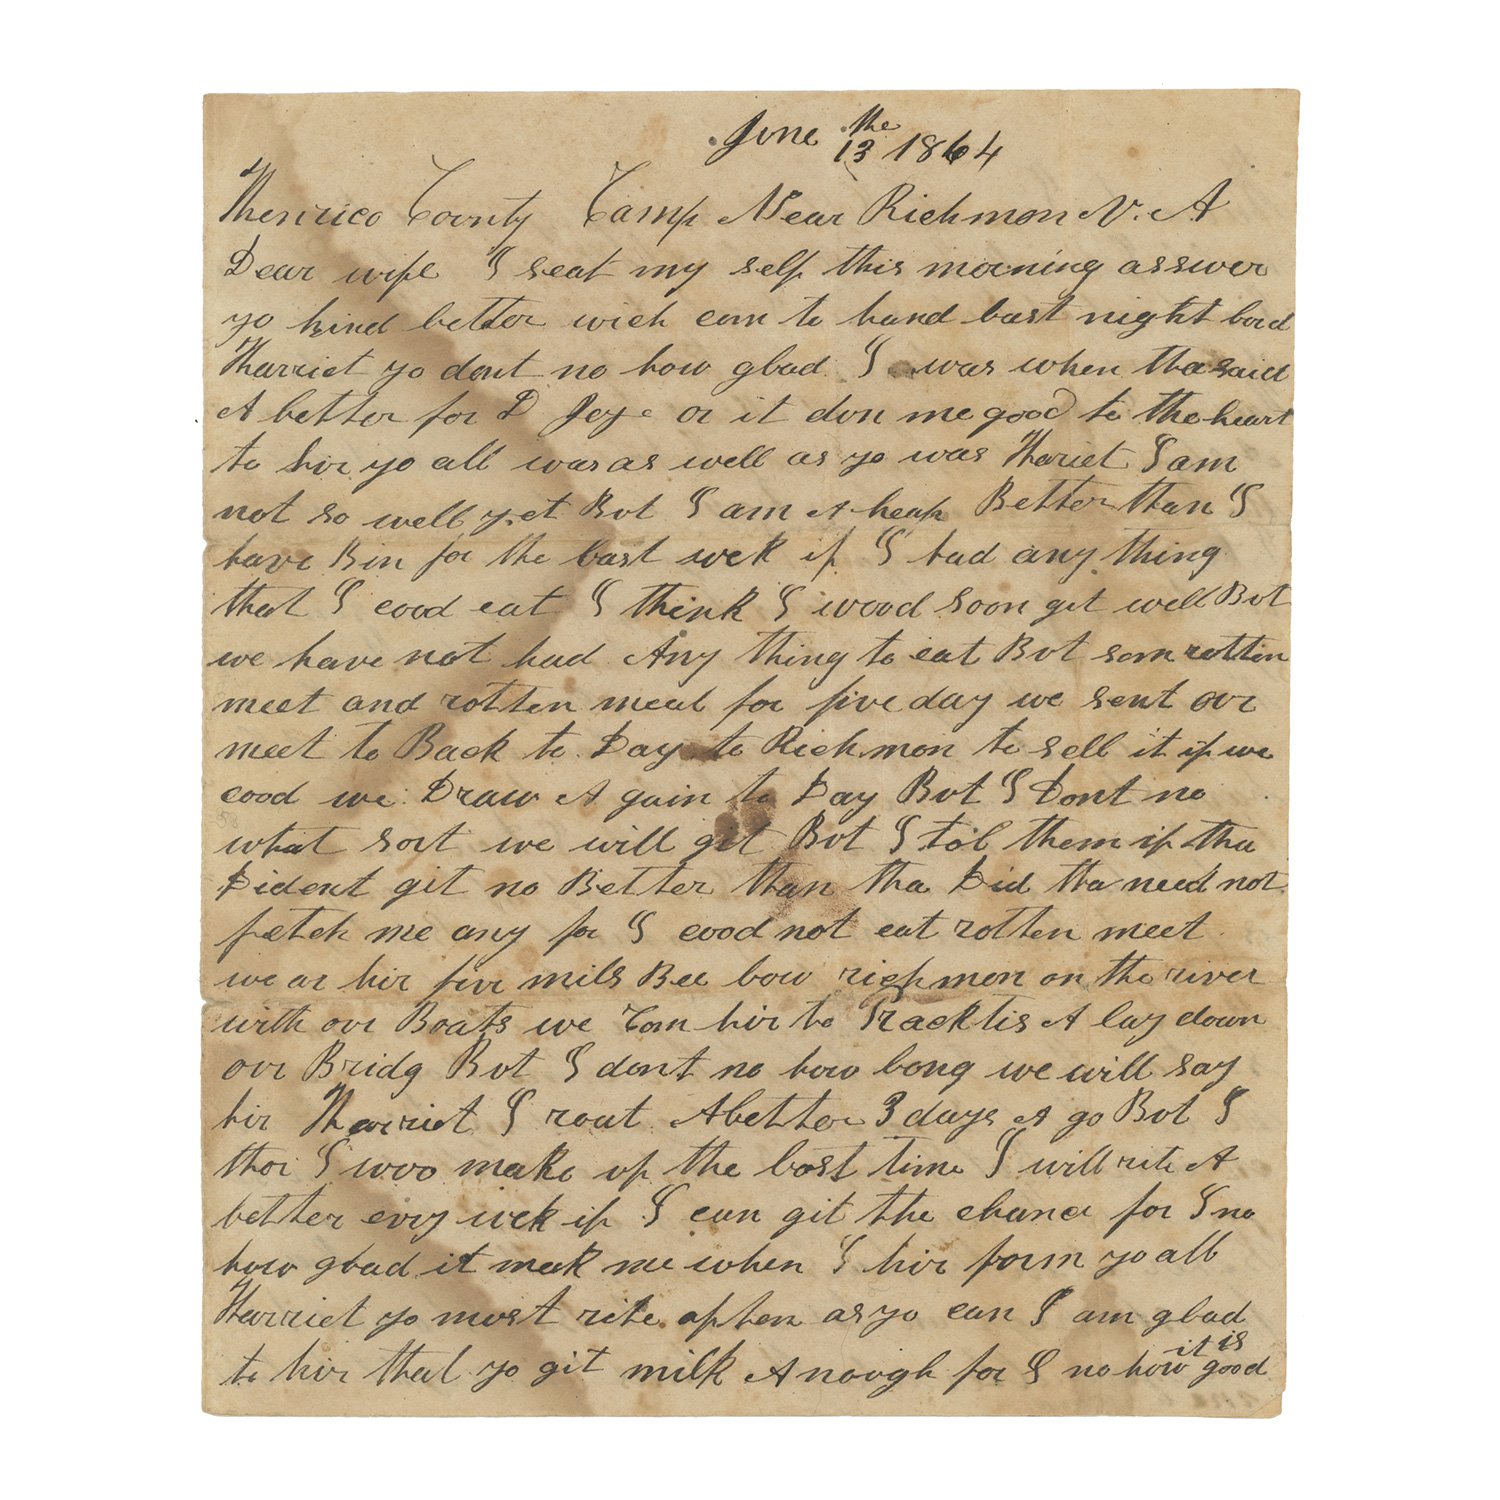 June the 13 1864
Henrico County Camp Near Richmon V. A
Dear wife I seat my self this morning answer
yo kind letter wich com to hand last night lord
Harriet yo dont no how glad I was when tha said
A letter for D Joye or it don me good to the heart
to hir yo all was as well as yo was Hariet I am
not so well yet But I am A heap Better than I
have Bin for the last wek if I had any thing
that I cood eat I think I wood soon git well But
we have not had Any thing to eat But som rotten
meet and rotten meal for five day we sent our
meet to Back to Day to Richmon to sell it if we
cood we Draw A gain to Day But I Dont no
what sort we will git But I tol them if tha
Dident git no Better than tha Did tha need not
fetch me any for I cood not eat rotten meet
we ar hir five mils Bee low richmon on the river
with our Boats we Com hir to Packtis A lay down
our Bridg But I dont no how long we will say
hir Harriet I rout A letter 3 days A go But I
thot I woo make up the lost time I will rite A
letter evry wek if I can git the chance for I no
how glad it mak me when I hir form yo all
Harriet yo must rite often as yo can I am glad
to hir that yo git milk A nough for I no how it is good